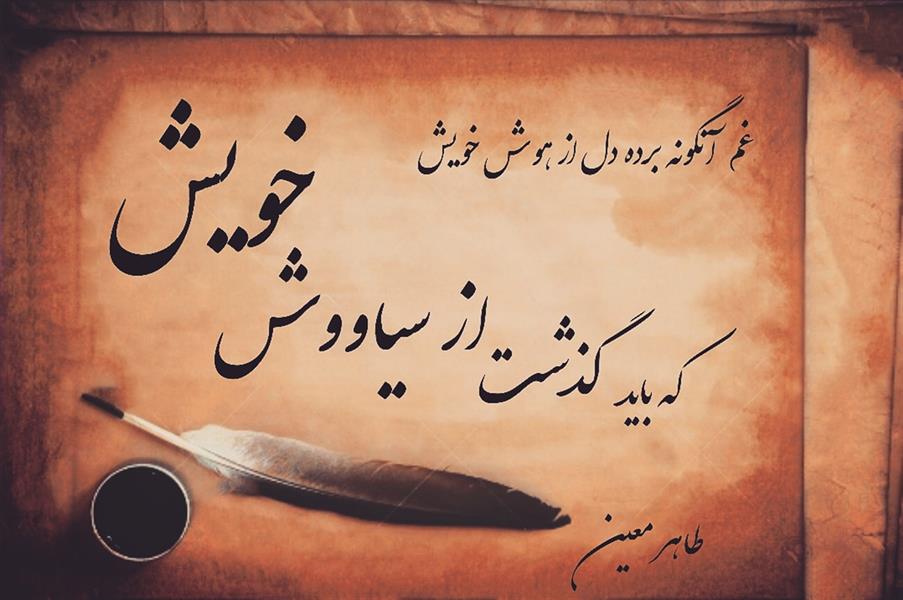 غم آنگونه برده دل از هوش خویش
که باید گذشت از سیاووش خویش
طاهر معین